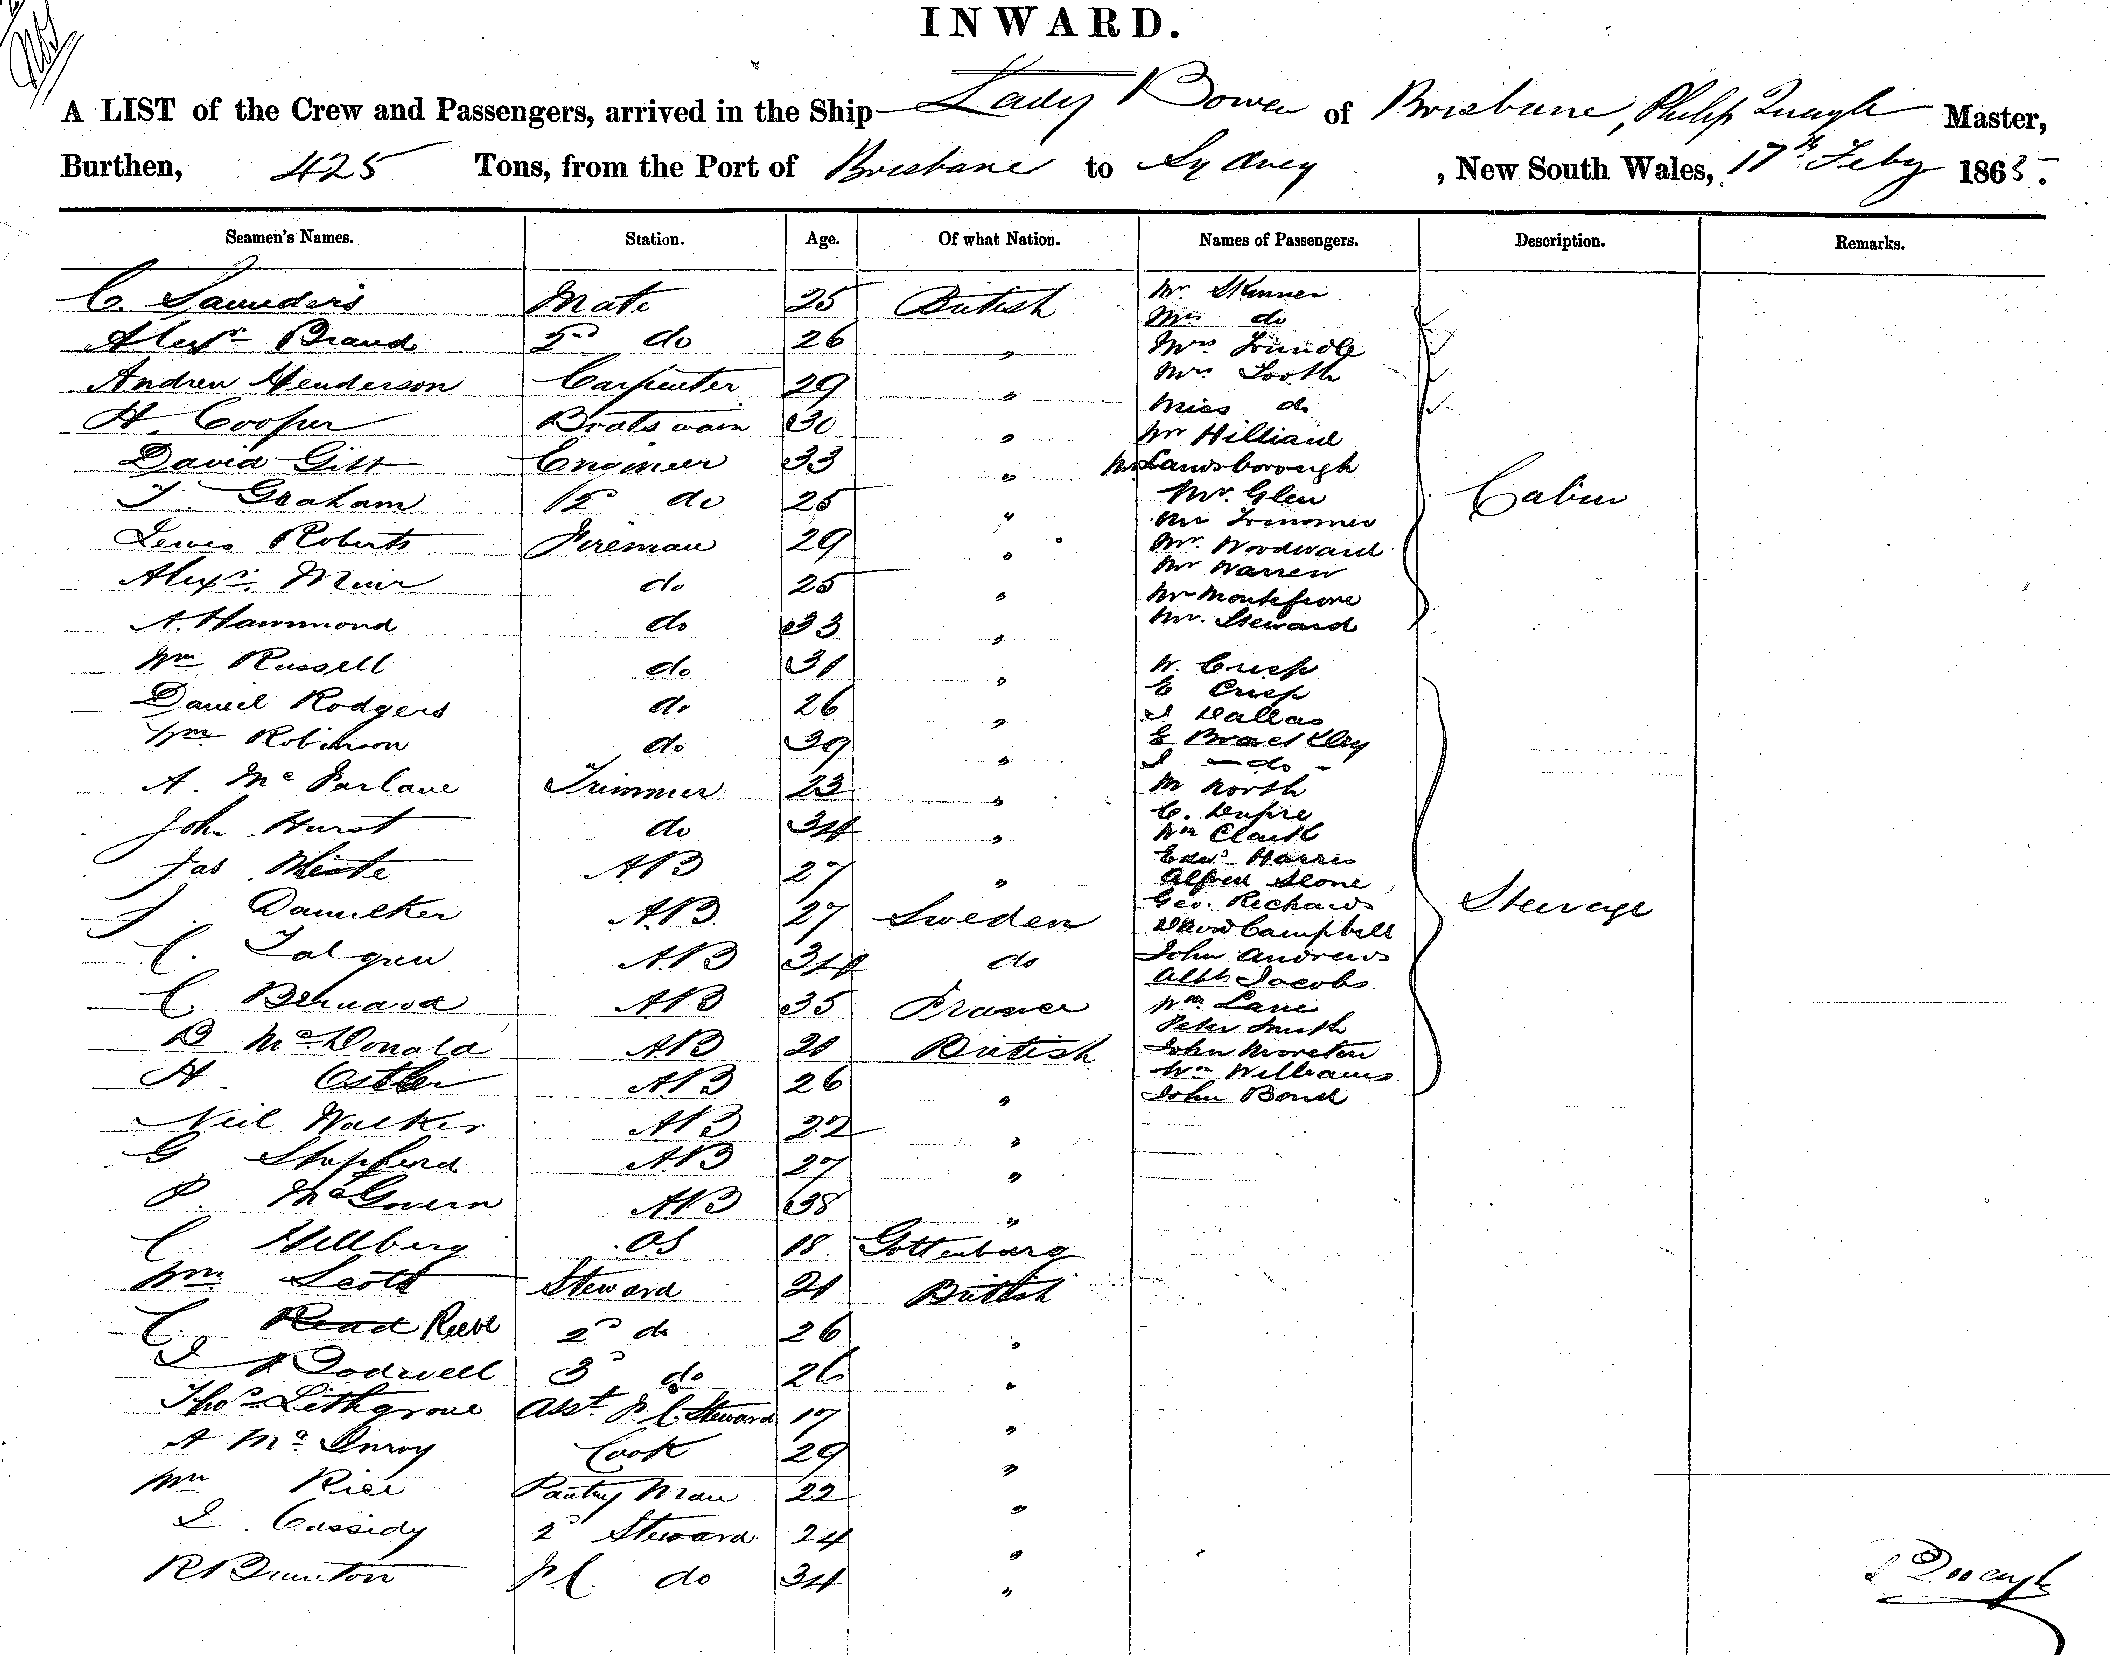 INWARD.
A LIST of the Crew and Passengers, arrived in the Ship Lady Bowen of Brisbane, Philip Quayle Master,
Burthen, 425 Tons, from the Port of Brisbane to Sydney, New South Wales, 17th Feby 1865.
Seamen's Names. Station. Age. Of what Nation. Names of Passengers. Description. Remarks.
C. Saunders Mate 25 British Mr Skinner
Mrs do
Alexr Brand 2nd do 26 " Mrs Trundle
Andrew Henderson Carpenter 29 " Mrs Tooth
Miss do
H. Cooper Boatswain 30 " Mr Hilliard
David Gill Engineer 33 " Mr Landsborough Cabin
T. Graham 2nd do 25 " Mr. Glen
Lewis Roberts Fireman 29 " Mr. Woodward
Alexr. Muir do 25 " Mr Warren
Mr Montefiore
A. Hammond do 33 " Mr. Steward
Wm Russell do 31 " W. Crisp
E Crisp
Daniel Rodgers do 26 " J Dallas
Wm Robinson do 39 " E Brackley
J - do -
A. McFarlane Trimmer 23 " M North
John Hurst do 34 " Wm Clark
Edwd Harris
Jas AB 27 " Alfred Slone
J. AB 27 Sweden Geo. Richards Steerage
David Campbell
C. AB 34 do John Andrews
Jacobs
C Bernard AB 35 France Wm Lane
Peter Smith
D McDonald AB 21 British John Moreton
H. AB 26 " Wm Williams
John Bond
Neil Walker AB 22 "
G AB 27 "
P. McGovern AB 38 "
C Hellberg OS 18 Gottenburg
Wm Scott Steward 21 British
C. Read Reeve 2nd do 26 "
Dodwell 3d do 26 "
Thos Lithgrove Asst F C Steward 17 "
A McInroy Cook 29 "
Wm Rice Pantry Man 22 "
J. Cassidy 2d Steward 24 "
R Bunton F C. do 34 "
P Quayle